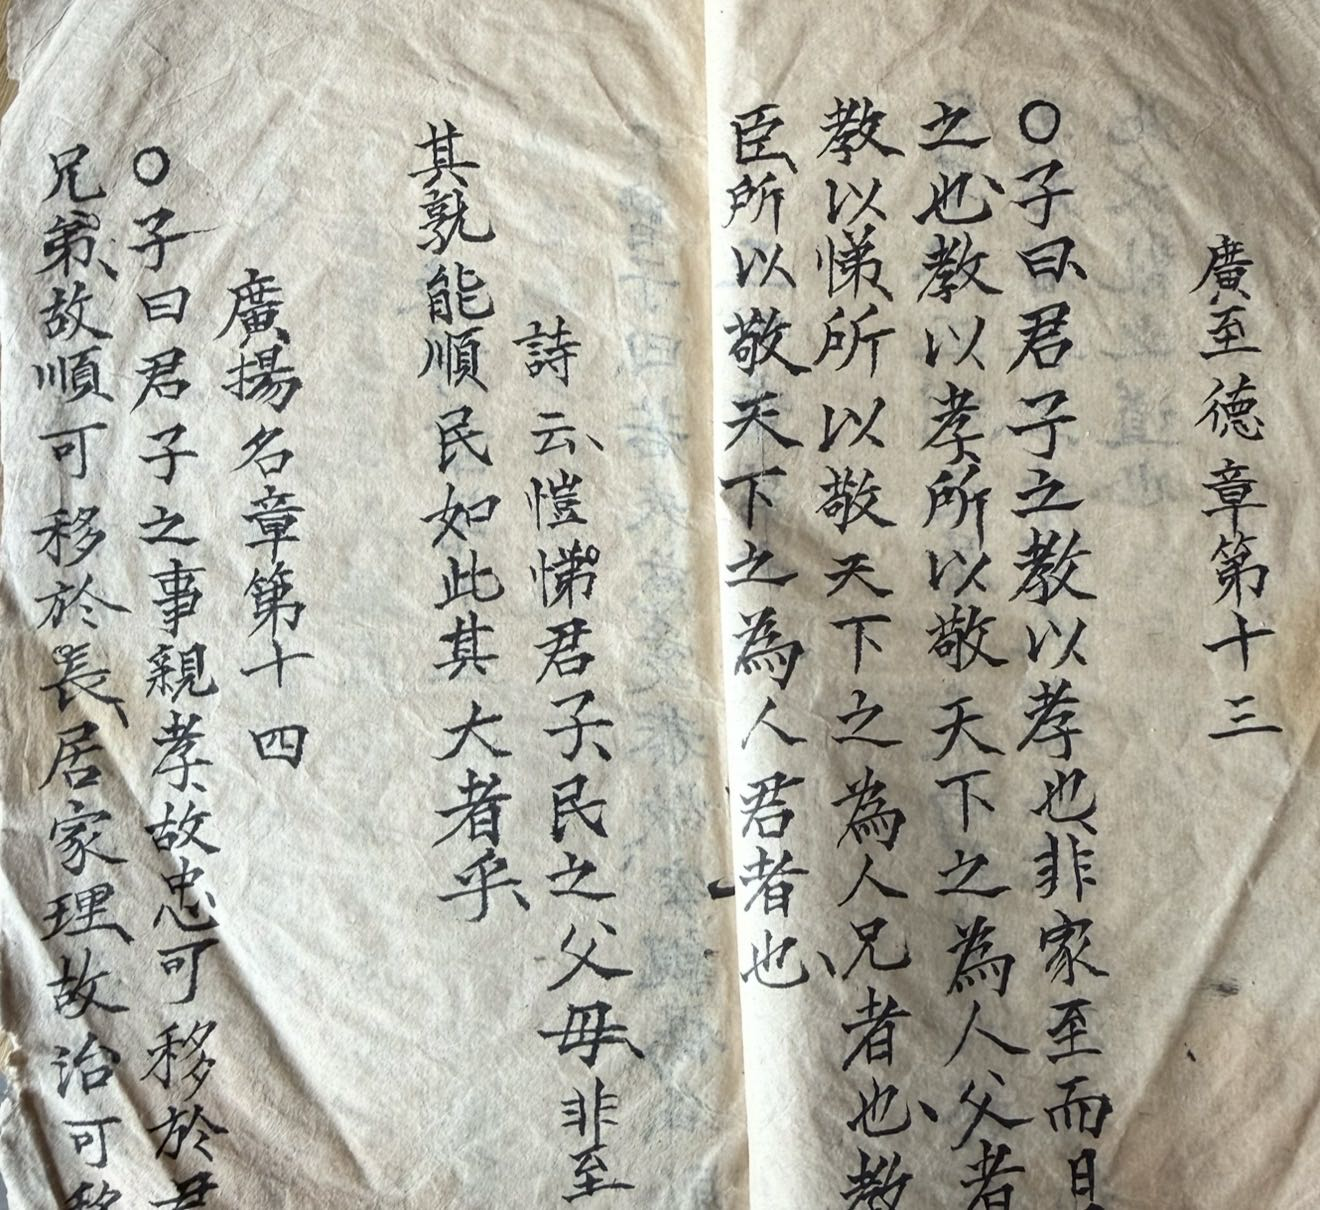 廣至德章第十三
○子曰君子之教以孝也非家至而日
之也教以孝所以敬天下之為人父者
教以悌所以敬天下之為人兄者也教
臣所以敬天下之為人君者也
詩云愷悌君子民之父母非至
其孰能順民如此其大者乎
廣揚名章第十四
○子曰君子之事親孝故忠可移於君
兄弟故順可移於長居家理故治可移